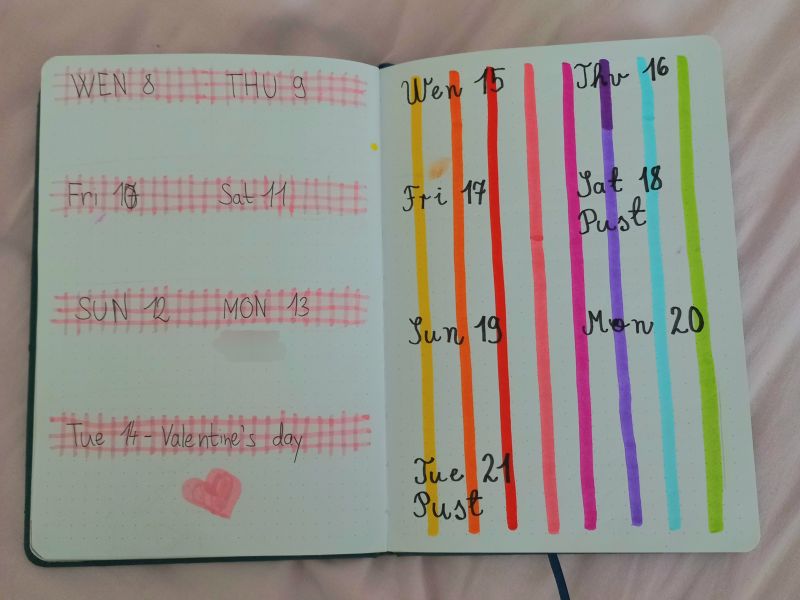 WEN 8 THU 9
Fri 10 Sat 11
SUN 12 MON 13
Tue 14 - Valentine's day
Wen 15 Thu 16
Fri 17 Sat 18
Pust
Sun 19 Mon 20
Tue 21
Pust